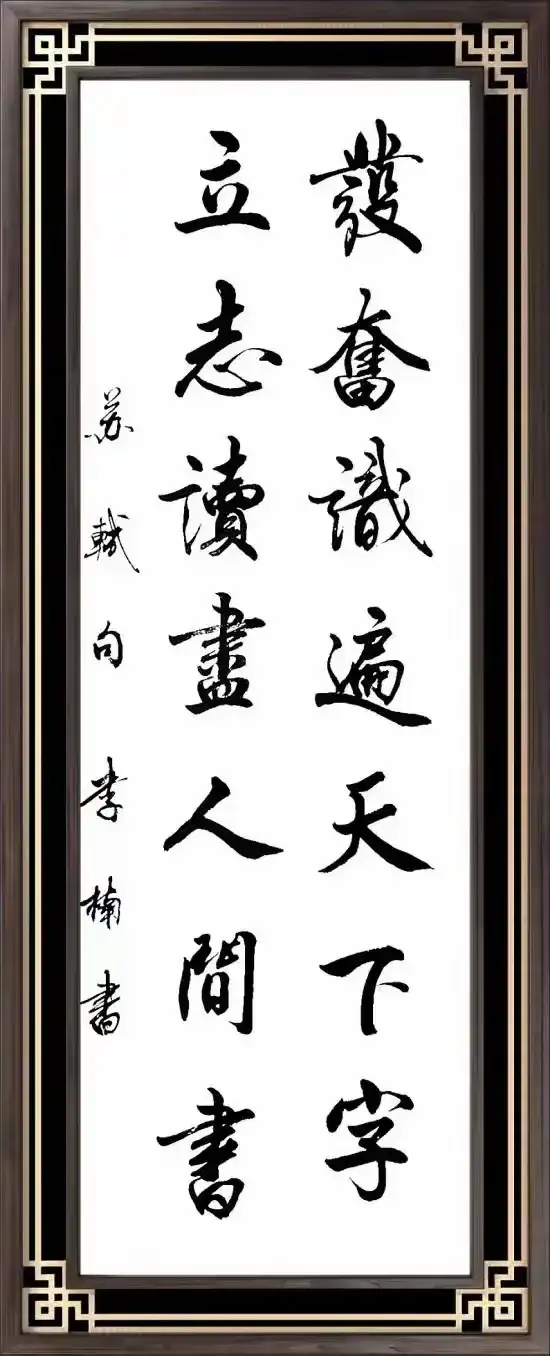 發奮識遍天下字
立志讀盡人間書
苏軾句 李楠書